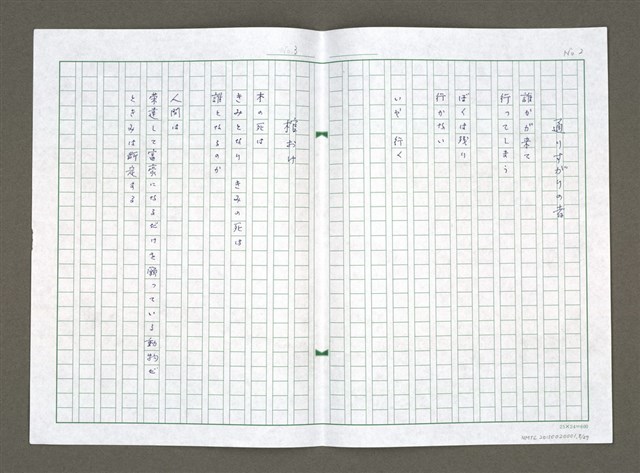 No 2
通りすがりの者
誰かが来て
行ってしまう
ぼくは残り
行かない
いや 行く
3
棺おけ
木の死は
きみとなり きみの死は
誰となるのか
人間は
栄達して富豪になるだけを願っている動物だ
ときみは断定する